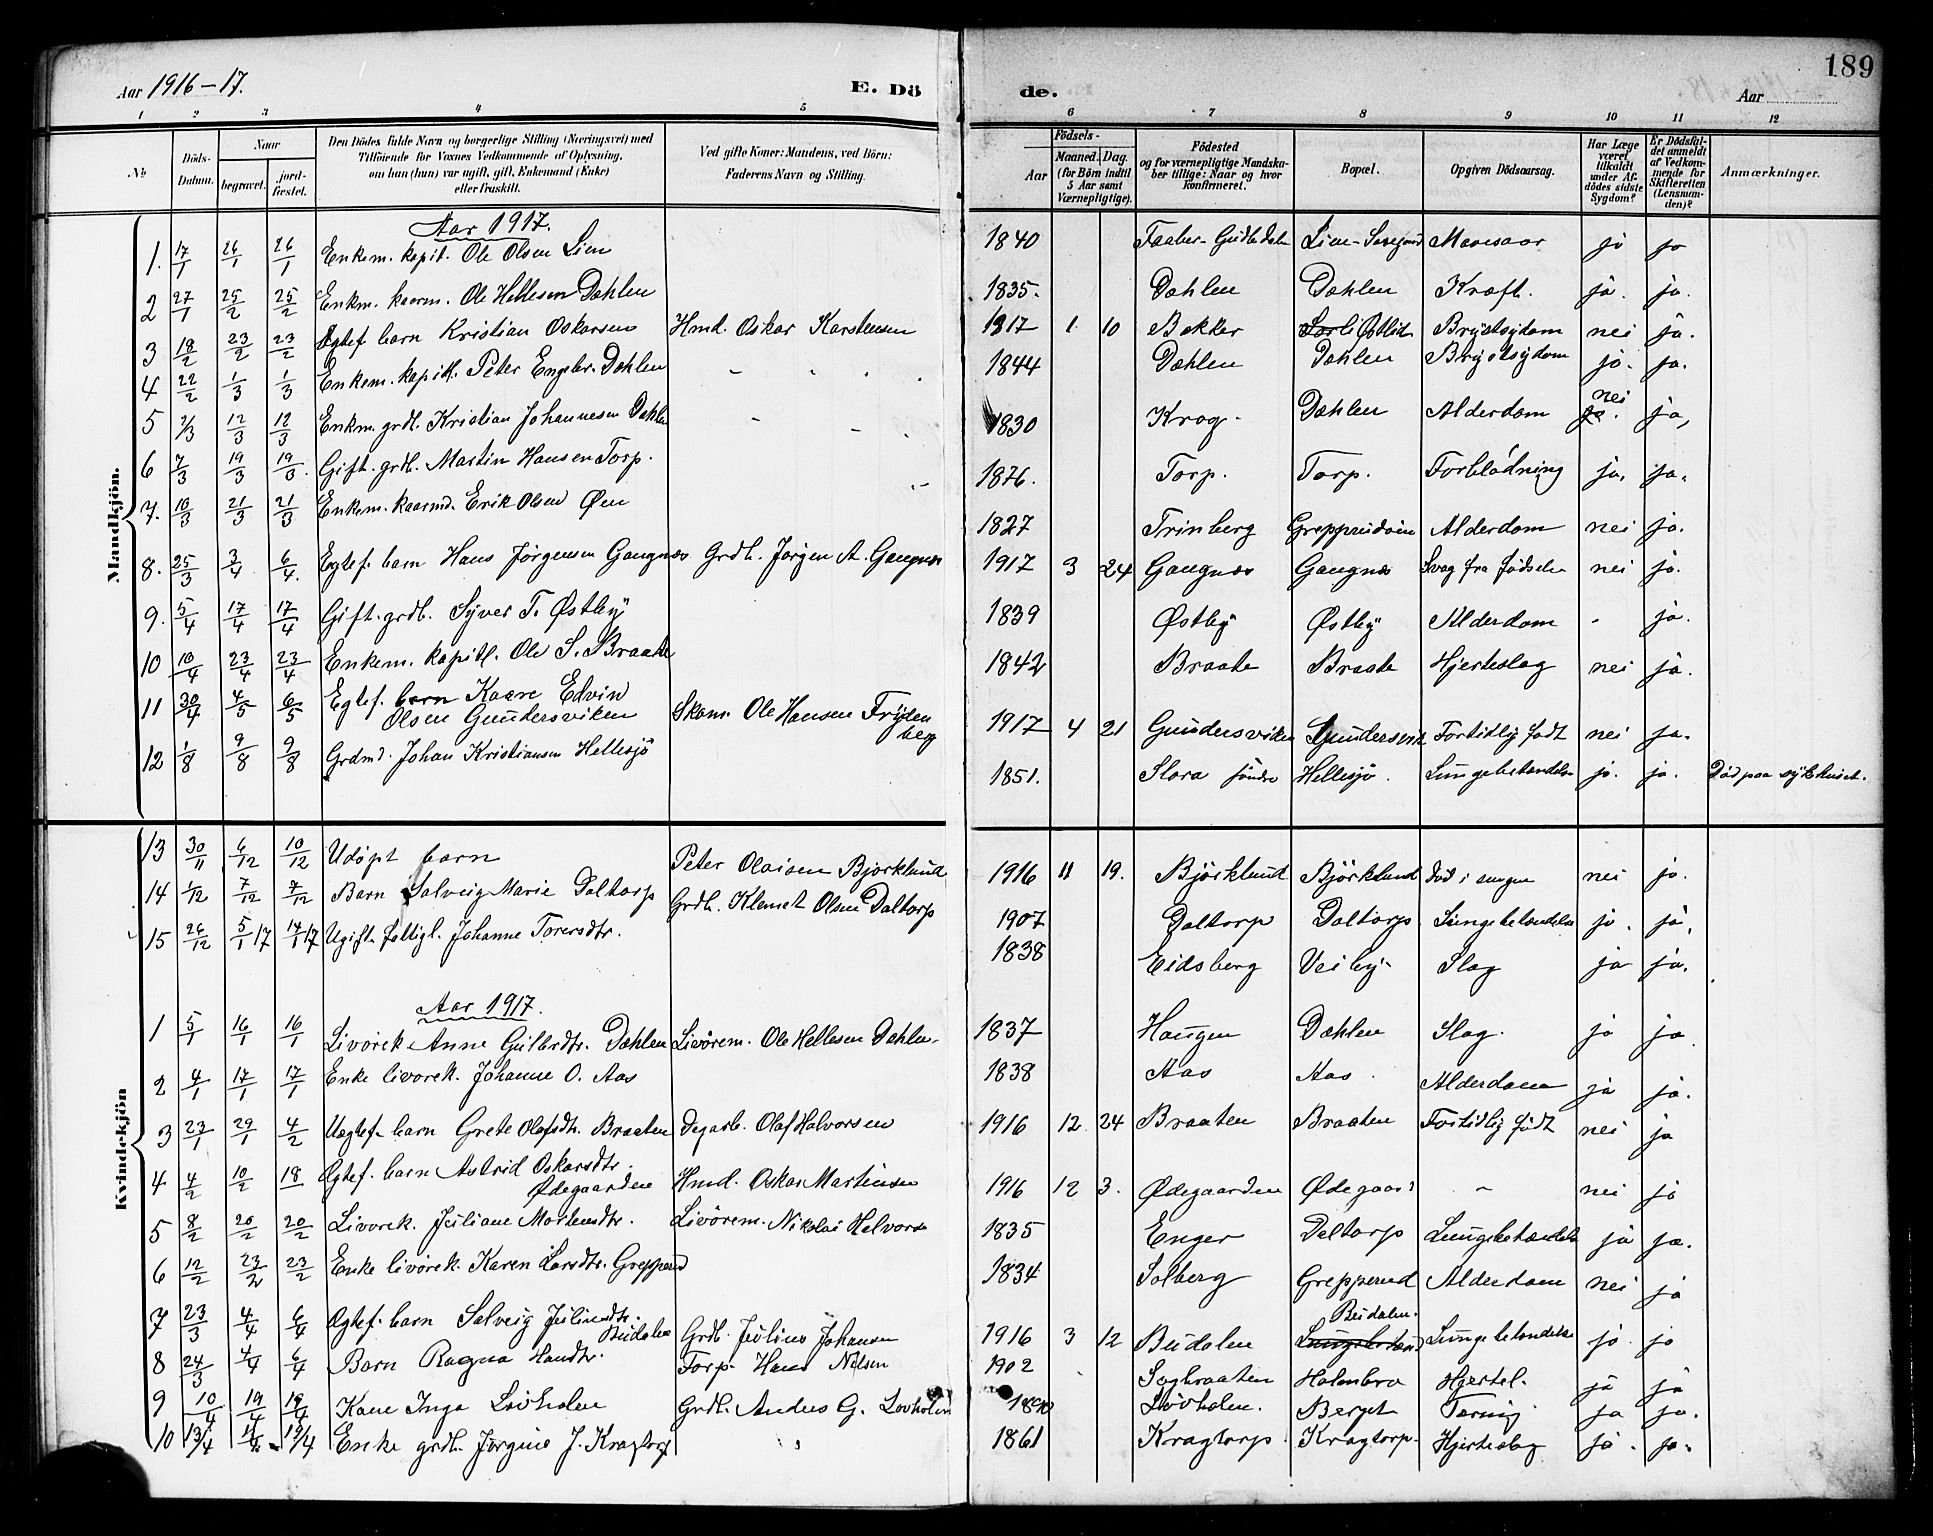 Aar 1916-17. E. Dö de. Aar 189
1 2 3 4 5 6 7 8 9 10 11 12
No Döds-Datum. Naar begravet. jord-fæstet. Den Dödes fulde Navn og borgerlige Stilling (Næringsvei) med Tilföiende for Voxnes Vedkommende af Oplysning, om han (hun) var ugift, gift, Enkemand (Enke) eller fraskilt. Ved gifte Koner: Mandens, ved Börn: Faderens Navn og Stilling. Födsels- Aar Maaned. Dag. (for Börn indtil 5 Aar samt Værnepligtige). Födested og for værnepligtige Mandskaber tillige: Naar og hvor konfirmeret. Bopæl. Opgiven Dödsaarsag. Har Læge været tilkaldt under Afdödes sidste Sygdom? Er Dödsfaldet anmeldt af Vedkommende for Skifteretten (Lensmanden)? Anmærkninger.
Mandkjön.
Aar 1917.
1. 17/1 26/1 26/1 Enkem. kapit. Ole Olsen Lien 1840 Lien ja ja
2 27/1 25/2 25/2 Enkm. kaarm. Ole Hellesen Dæhlen 1835. Dæhlen Dæhlen Kræft. ja. ja.
3 18/2 23/2 23/2 Ægtef. barn Kristian Oskarsen Hmd. Oskar Karstensen 1917 1 10 Bakker Brystsydom nei ja.
4 22/2 1/3 1/3 Enkem. kapitl. Peter Engebr. Dæhlen 1844 Dæhlen Dæhlen Brystsydom ja. ja.
5 2/3 12/3 12/3 Enkm. grdl. Kristian Johannesen Dæhlen 1830 Krog. Dæhlen Alderdom nei ja,
6 7/3 19/3 19/3. Gift. grdb. Martin Hansen Torp. 1876. Torp. Torp. Forblödning ja. ja.
7. 10/3 21/3 21/3 Enkem. kaarmd. Erik Olsen Øen 1827 Trinberg Alderdom nei ja.
8. 25/3 3/4 6/4. Egtef. barn Hans Jørgensen Gangnæs Grdb. Jørgen A. Gangnæs 1917 3 24 Gangnæs Gangnæs Svag fra fødselen nei ja.
9. 5/4 17/4 17/4 Gift. grdb. Syver T. Østby 1839 Østby Østby Alderdom - ja.
10 10/4 23/4 23/4 Enkem. kapitl. Ole S. Braate 1842 Braate Braate Hjerteslag nei ja.
11 30/4 4/5 6/5 Egtef. barn Kaare Edvin
Olsen Gundersviken Skom. Ole Hansen Frydenberg 1917 4 21 Gundersviken Gundersvik Fortidlig født nei ja.
12 1/8 9/8 9/8 Grdmd. Johan Kristiansen Hellesjø 1851. Slora søndre Hellesjø. Lungebetændelse ja. ja. Død paa sykehuset.
Kvindekjön
13 30/11 6/12 10/12 Udøpt barn Peter Olaisen Bjørklund 1916 11 19. Björklund Björklund Død i sengen nei ja.
14 1/12 7/12 7/12 Barn Solveig Marie Daltorp Grdb. Klemet Olsen Daltorp 1907 Daltorp Daltorp. Lungebetændelse ja. ja.
15 26/12 5/1 17 17/1 17 Ugift fattigl. Johanne Torersdtr. 1838 Eidsberg Veiby. Slag ja ja.
Aar 1917.
1 5/1 16/1 16/1 Livörek. Anne Gulbrdtr. Dæhlen Livörem. Ole Hellesen Dæhlen. 1837 Haugen Dæhlen Slag. ja ja
2 4/1 17/1 17/1 Enke livorek. Johanne O. Aas 1838 Aas Aas Alderdom ja ja.
3 23/1 29/1 4/2 Uegtef. barn Grete Olafsdtr. Braaten Olaf Halvorsen 1916 12 24 Braaten Braaten Fortidlig født nei ja
4 4/2 10/2 18 Ægtef. barn Astrid Oskarsdtr.
Ødegaarden Hmd. Oskar Martinsen 1916 12 3. Ødegaarden - nei ja
5 8/2 20/2 20/2 Livorek. Juliane Mortensdtr. Livörem. Nikolai Helvors 1835 Enger Daltorp Lungebetændelse ja ja.
6 12/2 23/2 23/2 Enke livörek. Karen Larsdtr. Grepperud 1834 Solberg Grepperud Alderdom nei ja
7 23/3 4/4 6/4 Ægtef. barn Solveig Julinsdtr.
Budalen Grdb. Julius Johansen 1916 3 12 Budalen Budalen. Lungebetændelse ja. ja
8 24/3 4/4 6/4 Barn Ragna Hansdtr. Torp. Hans Nilsen 1902 Holmbro Hjertel. ja ja
9 10/4 19/4 19/4 Kone Inga Lövholen Grdb. Anders G. Lovholen Lövholen. Berget Tæring ja ja.
10 13/4 13/4 Enke grdb. Jørgine J. Kragtorp 1861 Kragtorp. Kragtorp. Hjerteslag ja. ja.